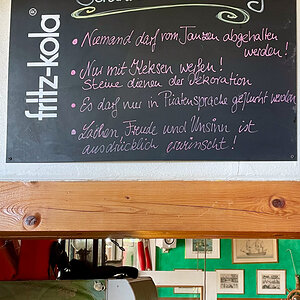 fritz-kola®
• Niemand darf vom Tanzen abgehalten
werden!
• Nur mit Keksen werfen!
Steine dienen der Dekoration
• Es darf nur in Piratensprache geflucht werden
• Lachen, Freude und Unsinn ist
ausdrücklich erwünscht!